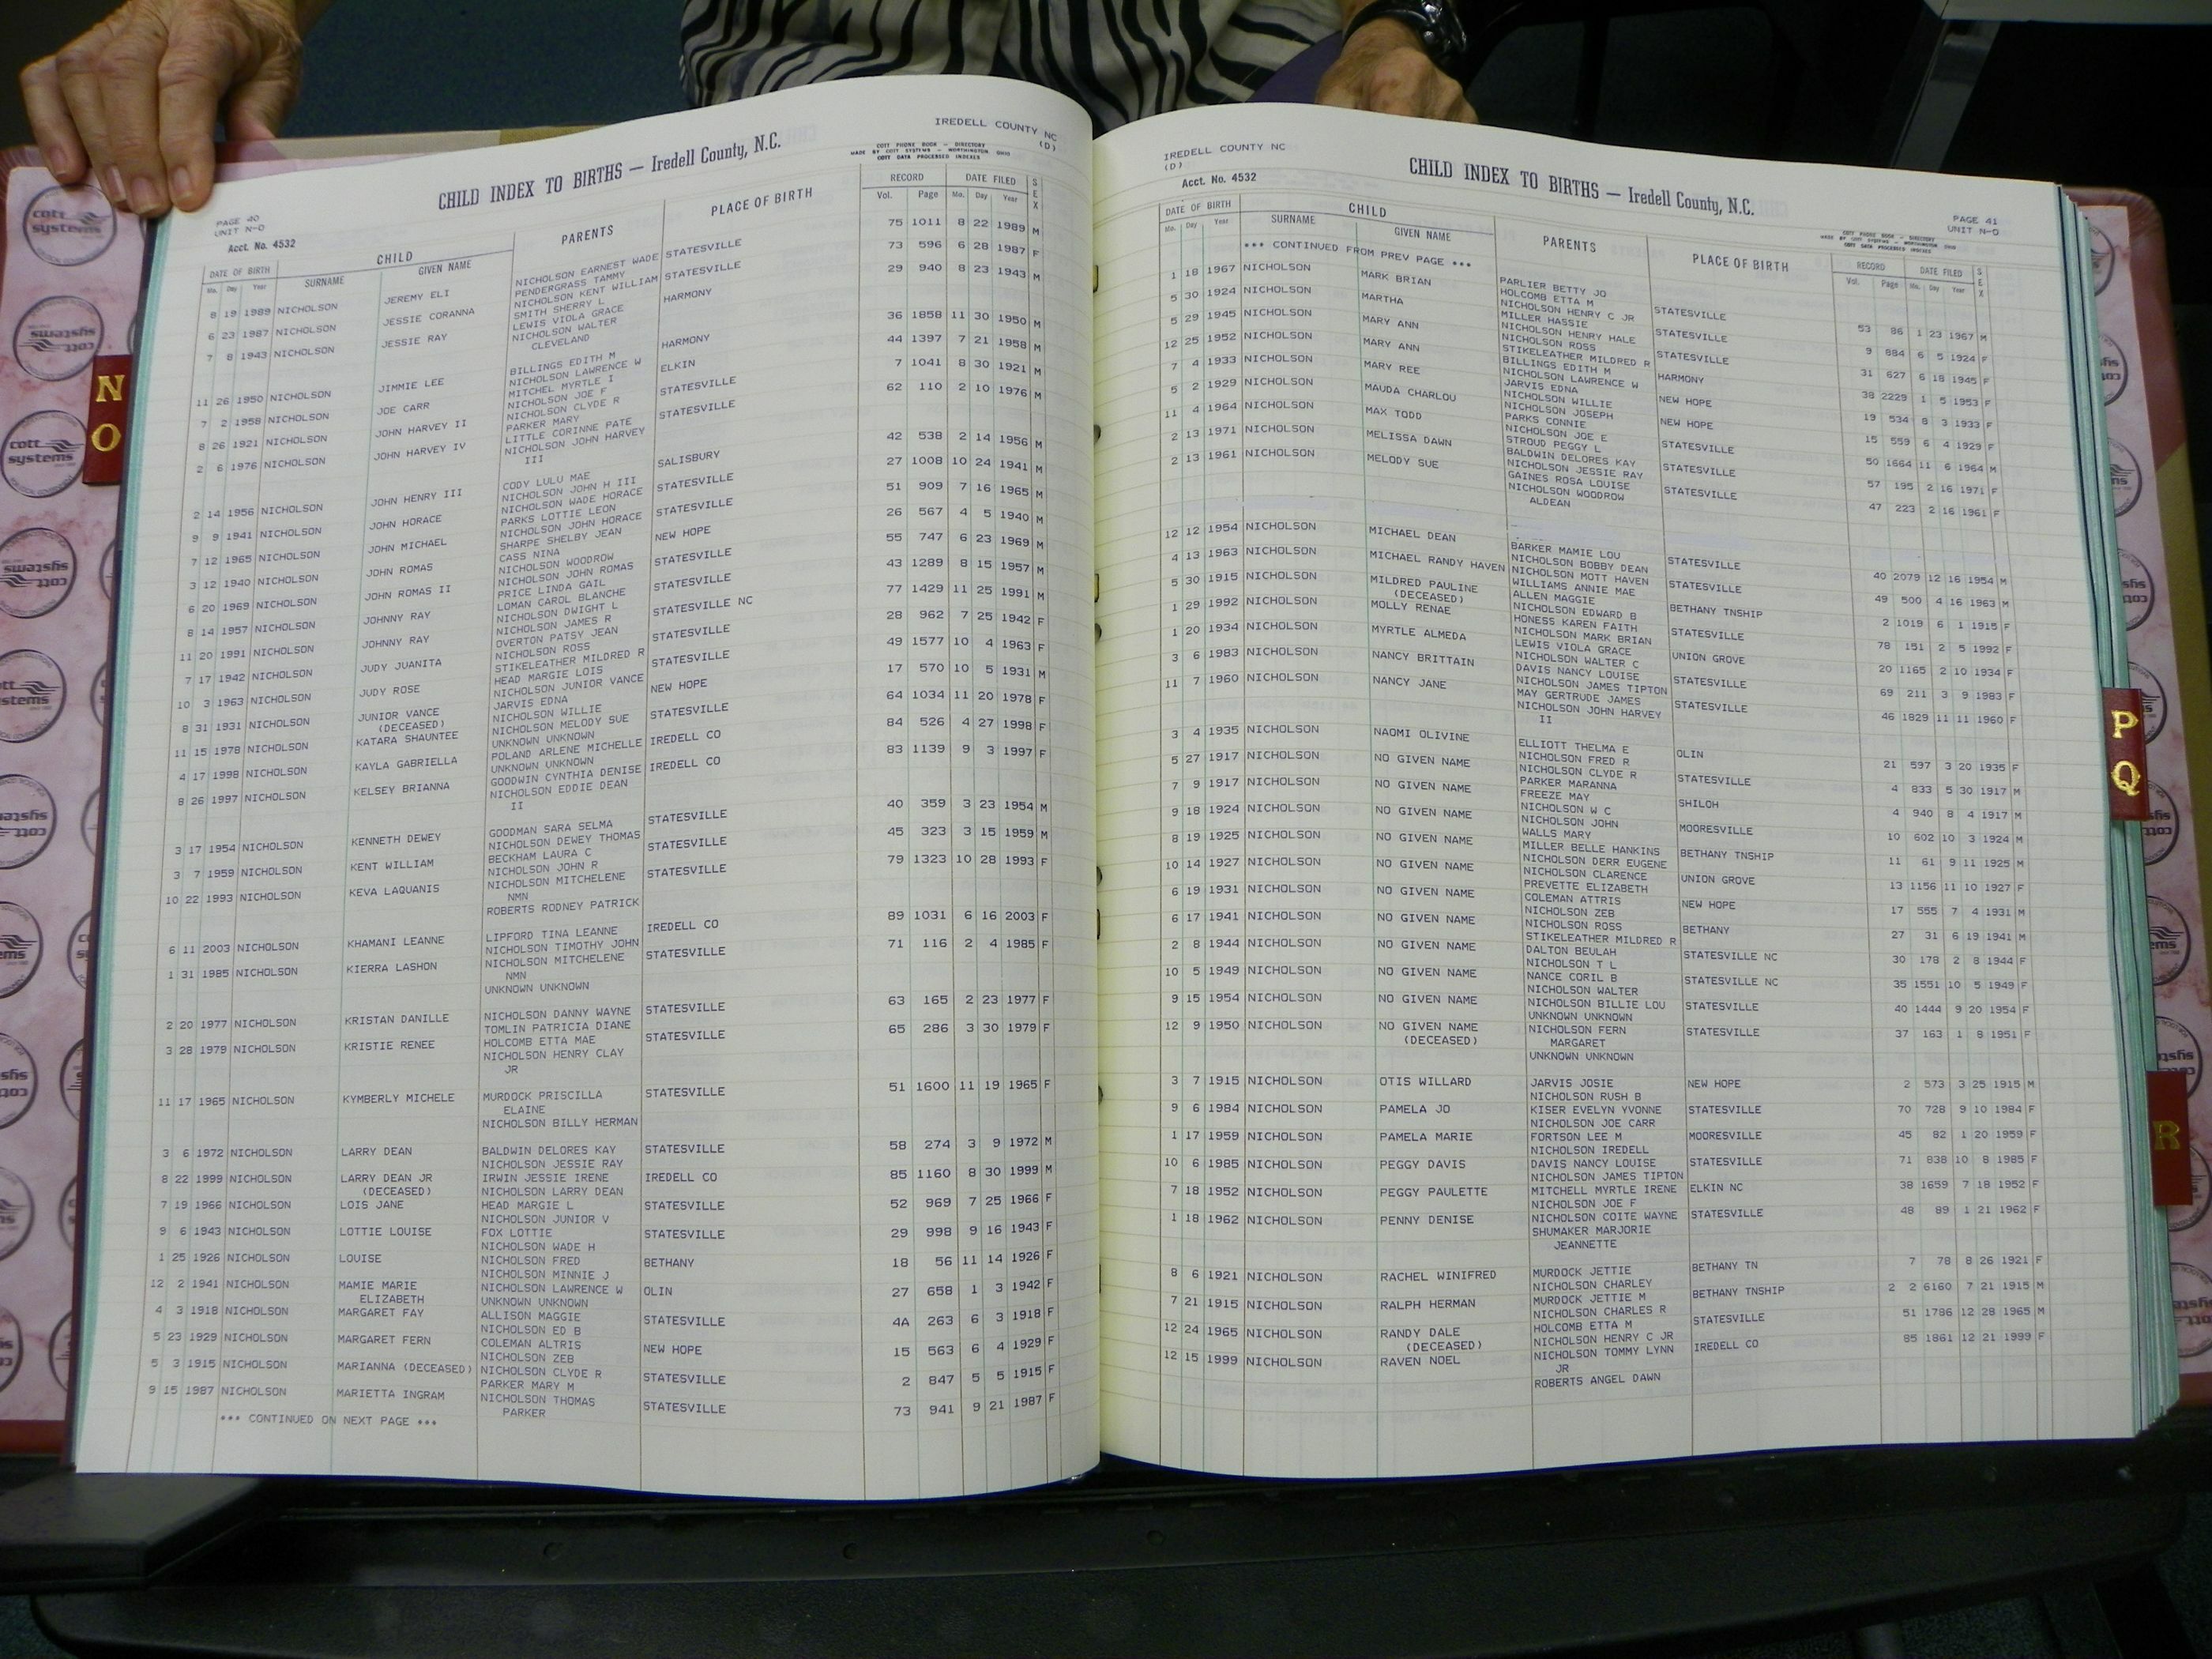 N
O
IREDELL COUNTY NC
(D)
CHILD INDEX TO BIRTHS — Iredell County, N.C.
COTT PHONE BOOK - DIRECTORY
MADE BY COTT SYSTEMS - WORTHINGTON OHIO
COTT DATA PROCESSED INDEXES
PAGE 40
UNIT N-O
Acct. No. 4532
DATE OF BIRTH CHILD PARENTS PLACE OF BIRTH RECORD DATE FILED SEX
Mo. Day Year SURNAME GIVEN NAME Vol. Page Mo. Day Year
8 19 1989 NICHOLSON JEREMY ELI NICHOLSON EARNEST WADE STATESVILLE 75 1011 8 22 1989 M
PENDERGRASS TAMMY
6 23 1987 NICHOLSON JESSIE CORANNA NICHOLSON KENT WILLIAM STATESVILLE 73 596 6 28 1987 F
SMITH SHERRY L
7 8 1943 NICHOLSON JESSIE RAY LEWIS VIOLA GRACE HARMONY 29 940 8 23 1943 M
NICHOLSON WALTER
CLEVELAND
11 26 1950 NICHOLSON JIMMIE LEE BILLINGS EDITH M HARMONY 36 1858 11 30 1950 M
NICHOLSON LAWRENCE W
7 2 1958 NICHOLSON JOE CARR MITCHEL MYRTLE I ELKIN 44 1397 7 21 1958 M
NICHOLSON JOE F
8 26 1921 NICHOLSON JOHN HARVEY II NICHOLSON CLYDE R STATESVILLE 7 1041 8 30 1921 M
PARKER MARY
2 6 1976 NICHOLSON JOHN HARVEY IV LITTLE CORINNE PATE STATESVILLE 62 110 2 10 1976 M
NICHOLSON JOHN HARVEY
III
2 14 1956 NICHOLSON JOHN HENRY III CODY LULU MAE SALISBURY 42 538 2 14 1956 M
NICHOLSON JOHN H III
9 9 1941 NICHOLSON JOHN HORACE NICHOLSON WADE HORACE STATESVILLE 27 1008 10 24 1941 M
PARKS LOTTIE LEON
7 12 1965 NICHOLSON JOHN MICHAEL NICHOLSON JOHN HORACE STATESVILLE 51 909 7 16 1965 M
SHARPE SHELBY JEAN
3 12 1940 NICHOLSON JOHN ROMAS CASS NINA NEW HOPE 26 567 4 5 1940 M
NICHOLSON WOODROW
6 20 1969 NICHOLSON JOHN ROMAS II NICHOLSON JOHN ROMAS STATESVILLE 55 747 6 23 1969 M
PRICE LINDA GAIL
8 14 1957 NICHOLSON JOHNNY RAY LOMAN CAROL BLANCHE STATESVILLE 43 1289 8 15 1957 M
NICHOLSON DWIGHT L
11 20 1991 NICHOLSON JOHNNY RAY NICHOLSON JAMES R STATESVILLE NC 77 1429 11 25 1991 M
OVERTON PATSY JEAN
7 17 1942 NICHOLSON JUDY JUANITA NICHOLSON ROSS STATESVILLE 28 962 7 25 1942 F
STIKELEATHER MILDRED R
10 3 1963 NICHOLSON JUDY ROSE HEAD MARGIE LOIS STATESVILLE 49 1577 10 4 1963 F
NICHOLSON JUNIOR VANCE
8 31 1931 NICHOLSON JUNIOR VANCE JARVIS EDNA NEW HOPE 17 570 10 5 1931 M
(DECEASED) NICHOLSON WILLIE
11 15 1978 NICHOLSON KATARA SHAUNTEE NICHOLSON MELODY SUE STATESVILLE 64 1034 11 20 1978 F
UNKNOWN UNKNOWN
4 17 1998 NICHOLSON KAYLA GABRIELLA POLAND ARLENE MICHELLE IREDELL CO 84 526 4 27 1998 F
UNKNOWN UNKNOWN
8 26 1997 NICHOLSON KELSEY BRIANNA GOODWIN CYNTHIA DENISE IREDELL CO 83 1139 9 3 1997 F
NICHOLSON EDDIE DEAN
II
3 17 1954 NICHOLSON KENNETH DEWEY GOODMAN SARA SELMA STATESVILLE 40 359 3 23 1954 M
NICHOLSON DEWEY THOMAS
3 7 1959 NICHOLSON KENT WILLIAM BECKHAM LAURA C STATESVILLE 45 323 3 15 1959 M
NICHOLSON JOHN R
10 22 1993 NICHOLSON KEVA LAQUANIS NICHOLSON MITCHELENE STATESVILLE 79 1323 10 28 1993 F
NMN
ROBERTS RODNEY PATRICK
6 11 2003 NICHOLSON KHAMANI LEANNE LIPFORD TINA LEANNE IREDELL CO 89 1031 6 16 2003 F
NICHOLSON TIMOTHY JOHN
1 31 1985 NICHOLSON KIERRA LASHON NICHOLSON MITCHELENE STATESVILLE 71 116 2 4 1985 F
NMN
UNKNOWN UNKNOWN
2 20 1977 NICHOLSON KRISTAN DANILLE NICHOLSON DANNY WAYNE STATESVILLE 63 165 2 23 1977 F
TOMLIN PATRICIA DIANE
3 28 1979 NICHOLSON KRISTIE RENEE HOLCOMB ETTA MAE STATESVILLE 65 286 3 30 1979 F
NICHOLSON HENRY CLAY
JR
11 17 1965 NICHOLSON KYMBERLY MICHELE MURDOCK PRISCILLA STATESVILLE 51 1600 11 19 1965 F
ELAINE
NICHOLSON BILLY HERMAN
3 6 1972 NICHOLSON LARRY DEAN BALDWIN DELORES KAY STATESVILLE 58 274 3 9 1972 M
NICHOLSON JESSIE RAY
8 22 1999 NICHOLSON LARRY DEAN JR IRWIN JESSIE IRENE IREDELL CO 85 1160 8 30 1999 M
(DECEASED) NICHOLSON LARRY DEAN
7 19 1966 NICHOLSON LOIS JANE HEAD MARGIE L STATESVILLE 52 969 7 25 1966 F
NICHOLSON JUNIOR V
9 6 1943 NICHOLSON LOTTIE LOUISE FOX LOTTIE STATESVILLE 29 998 9 16 1943 F
NICHOLSON WADE H
1 25 1926 NICHOLSON LOUISE NICHOLSON FRED BETHANY 18 56 11 14 1926 F
NICHOLSON MINNIE J
12 2 1941 NICHOLSON MAMIE MARIE NICHOLSON LAWRENCE W OLIN 27 658 1 3 1942 F
ELIZABETH UNKNOWN UNKNOWN
4 3 1918 NICHOLSON MARGARET FAY ALLISON MAGGIE STATESVILLE 4A 263 6 3 1918 F
NICHOLSON ED B
5 23 1929 NICHOLSON MARGARET FERN COLEMAN ALTRIS NEW HOPE 15 563 6 4 1929 F
NICHOLSON ZEB
5 3 1915 NICHOLSON MARIANNA (DECEASED) NICHOLSON CLYDE R STATESVILLE 2 847 5 5 1915 F
PARKER MARY M
9 15 1987 NICHOLSON MARIETTA INGRAM NICHOLSON THOMAS STATESVILLE 73 941 9 21 1987 F
PARKER
*** CONTINUED ON NEXT PAGE ***
IREDELL COUNTY NC
(D)
Acct. No. 4532
CHILD INDEX TO BIRTHS — Iredell County, N.C.
PAGE 41
UNIT N-O
COTT PHONE BOOK - DIRECTORY
MADE BY COTT SYSTEMS - WORTHINGTON OHIO
COTT DATA PROCESSED INDEXES
DATE OF BIRTH CHILD PARENTS PLACE OF BIRTH RECORD DATE FILED SEX
Mo. Day Year SURNAME GIVEN NAME Vol. Page Mo. Day Year
*** CONTINUED FROM PREV PAGE ***
PARLIER BETTY JO
1 18 1967 NICHOLSON MARK BRIAN HOLCOMB ETTA M STATESVILLE 53 86 1 23 1967 M
NICHOLSON HENRY C JR
5 30 1924 NICHOLSON MARTHA MILLER HASSIE STATESVILLE 9 884 6 5 1924 F
NICHOLSON HENRY HALE
5 29 1945 NICHOLSON MARY ANN NICHOLSON ROSS STATESVILLE 31 627 6 18 1945 F
STIKELEATHER MILDRED R
12 25 1952 NICHOLSON MARY ANN BILLINGS EDITH M HARMONY 38 2229 1 5 1953 F
NICHOLSON LAWRENCE W
7 4 1933 NICHOLSON MARY REE JARVIS EDNA NEW HOPE 19 534 8 3 1933 F
NICHOLSON WILLIE
5 2 1929 NICHOLSON MAUDA CHARLOU NICHOLSON JOSEPH NEW HOPE 15 559 6 4 1929 F
PARKS CONNIE
11 4 1964 NICHOLSON MAX TODD NICHOLSON JOE E STATESVILLE 50 1664 11 6 1964 M
STROUD PEGGY L
2 13 1971 NICHOLSON MELISSA DAWN BALDWIN DELORES KAY STATESVILLE 57 195 2 16 1971 F
NICHOLSON JESSIE RAY
2 13 1961 NICHOLSON MELODY SUE GAINES ROSA LOUISE STATESVILLE 47 223 2 16 1961 F
NICHOLSON WOODROW
ALDEAN
12 12 1954 NICHOLSON MICHAEL DEAN BARKER MAMIE LOU STATESVILLE 40 2079 12 16 1954 M
NICHOLSON BOBBY DEAN
4 13 1963 NICHOLSON MICHAEL RANDY HAVEN NICHOLSON MOTT HAVEN STATESVILLE 49 500 4 16 1963 M
WILLIAMS ANNIE MAE
5 30 1915 NICHOLSON MILDRED PAULINE ALLEN MAGGIE BETHANY TNSHIP 2 1019 6 1 1915 F
(DECEASED) NICHOLSON EDWARD B
1 29 1992 NICHOLSON MOLLY RENAE HONESS KAREN FAITH STATESVILLE 78 151 2 5 1992 F
NICHOLSON MARK BRIAN
1 20 1934 NICHOLSON MYRTLE ALMEDA LEWIS VIOLA GRACE UNION GROVE 20 1165 2 10 1934 F
NICHOLSON WALTER C
3 6 1983 NICHOLSON NANCY BRITTAIN DAVIS NANCY LOUISE STATESVILLE 69 211 3 9 1983 F
NICHOLSON JAMES TIPTON
11 7 1960 NICHOLSON NANCY JANE MAY GERTRUDE JAMES STATESVILLE 46 1829 11 11 1960 F
NICHOLSON JOHN HARVEY
II
3 4 1935 NICHOLSON NAOMI OLIVINE ELLIOTT THELMA E OLIN 21 597 3 20 1935 F
NICHOLSON FRED R
5 27 1917 NICHOLSON NO GIVEN NAME NICHOLSON CLYDE R STATESVILLE 4 833 5 30 1917 M
PARKER MARANNA
7 9 1917 NICHOLSON NO GIVEN NAME FREEZE MAY SHILOH 4 940 8 4 1917 M
NICHOLSON W C
9 18 1924 NICHOLSON NO GIVEN NAME NICHOLSON JOHN MOORESVILLE 10 602 10 3 1924 M
WALLS MARY
8 19 1925 NICHOLSON NO GIVEN NAME MILLER BELLE HANKINS BETHANY TNSHIP 11 61 9 11 1925 M
NICHOLSON DERR EUGENE
10 14 1927 NICHOLSON NO GIVEN NAME NICHOLSON CLARENCE UNION GROVE 13 1156 11 10 1927 F
PREVETTE ELIZABETH
6 19 1931 NICHOLSON NO GIVEN NAME COLEMAN ATTRIS NEW HOPE 17 555 7 4 1931 M
NICHOLSON ZEB
6 17 1941 NICHOLSON NO GIVEN NAME NICHOLSON ROSS BETHANY 27 31 6 19 1941 M
STIKELEATHER MILDRED R
2 8 1944 NICHOLSON NO GIVEN NAME DALTON BEULAH STATESVILLE NC 30 178 2 8 1944 F
NICHOLSON T L
10 5 1949 NICHOLSON NO GIVEN NAME NANCE CORIL B STATESVILLE NC 35 1551 10 5 1949 F
NICHOLSON WALTER
9 15 1954 NICHOLSON NO GIVEN NAME NICHOLSON BILLIE LOU STATESVILLE 40 1444 9 20 1954 F
UNKNOWN UNKNOWN
12 9 1950 NICHOLSON NO GIVEN NAME NICHOLSON FERN STATESVILLE 37 163 1 8 1951 F
(DECEASED) MARGARET
UNKNOWN UNKNOWN
3 7 1915 NICHOLSON OTIS WILLARD JARVIS JOSIE NEW HOPE 2 573 3 25 1915 M
NICHOLSON RUSH B
9 6 1984 NICHOLSON PAMELA JO KISER EVELYN YVONNE STATESVILLE 70 728 9 10 1984 F
NICHOLSON JOE CARR
1 17 1959 NICHOLSON PAMELA MARIE FORTSON LEE M MOORESVILLE 45 82 1 20 1959 F
NICHOLSON IREDELL
10 6 1985 NICHOLSON PEGGY DAVIS DAVIS NANCY LOUISE STATESVILLE 71 838 10 8 1985 F
NICHOLSON JAMES TIPTON
7 18 1952 NICHOLSON PEGGY PAULETTE MITCHELL MYRTLE IRENE ELKIN NC 38 1659 7 18 1952 F
NICHOLSON JOE F
1 18 1962 NICHOLSON PENNY DENISE NICHOLSON COITE WAYNE STATESVILLE 48 89 1 21 1962 F
SHUMAKER MARJORIE
JEANNETTE
8 6 1921 NICHOLSON RACHEL WINIFRED MURDOCK JETTIE BETHANY TN 7 78 8 26 1921 F
NICHOLSON CHARLEY
7 21 1915 NICHOLSON RALPH HERMAN MURDOCK JETTIE M BETHANY TNSHIP 2 2 6160 7 21 1915 M
NICHOLSON CHARLES R
12 24 1965 NICHOLSON RANDY DALE HOLCOMB ETTA M STATESVILLE 51 1786 12 28 1965 M
(DECEASED) NICHOLSON HENRY C JR
12 15 1999 NICHOLSON RAVEN NOEL NICHOLSON TOMMY LYNN IREDELL CO 85 1861 12 21 1999 F
JR
ROBERTS ANGEL DAWN
P
Q
R
cott
systems